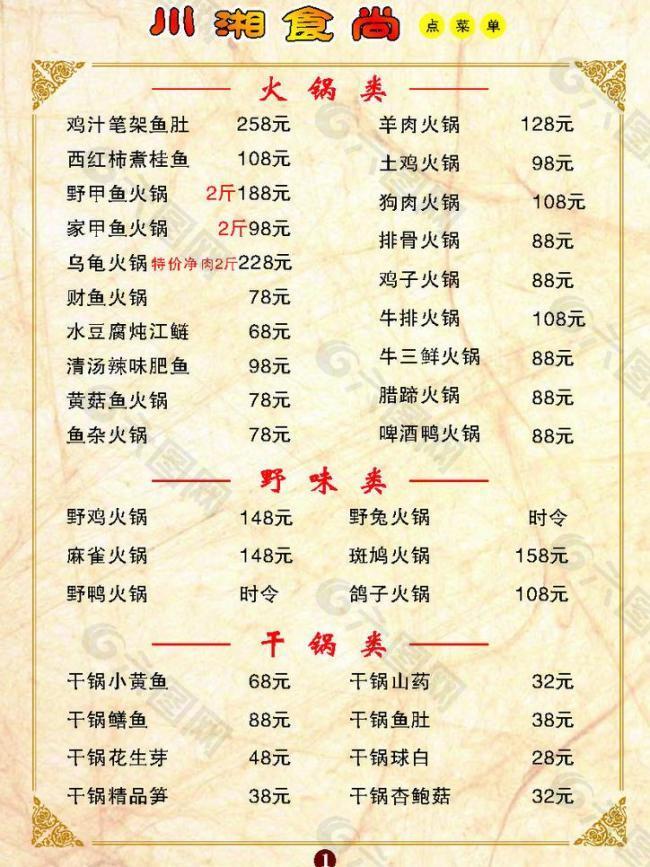 川湘食尚 点菜单
火锅类
鸡汁笔架鱼肚 258元
西红柿煮桂鱼 108元
野甲鱼火锅 2斤188元
家甲鱼火锅 2斤98元
乌龟火锅 特价净肉2斤228元
财鱼火锅 78元
水豆腐炖江鲢 68元
清汤辣味肥鱼 98元
黄菇鱼火锅 78元
鱼杂火锅 78元
羊肉火锅 128元
土鸡火锅 98元
狗肉火锅 108元
排骨火锅 88元
鸡子火锅 88元
牛排火锅 108元
牛三鲜火锅 88元
腊蹄火锅 88元
啤酒鸭火锅 88元
野味类
野鸡火锅 148元 野兔火锅 时令
麻雀火锅 148元 斑鸠火锅 158元
野鸭火锅 时令 鸽子火锅 108元
干锅类
干锅小黄鱼 68元 干锅山药 32元
干锅鳝鱼 88元 干锅鱼肚 38元
干锅花生芽 48元 干锅球白 28元
干锅精品笋 38元 干锅杏鲍菇 32元
1